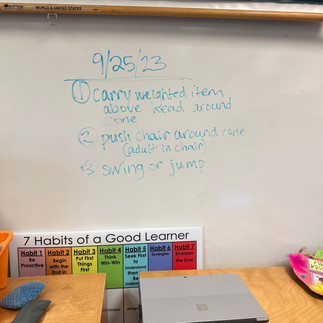 WORLD & UNITED STATES
9/25/23
① carry weighted item
above head around
cone
② push chair around cone
(adult in chair)
3 swing or jump
7 Habits of a Good Learner
Habit 1 Habit 2 Habit 3 Habit 4 Habit 5 Habit 6 Habit 7
Be Proactive
Begin with the End in
Put First Things First
Think Win-Win
Seek First to Understand then Be
Synergize
Sharpen the Saw